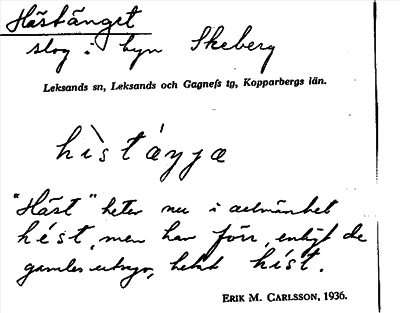 Hästänget
slog i byn Skeberg
Leksands sn, Leksands och Gagnefs tg, Kopparbergs län.
hìstáyja
"Häst" heter nu i allmänhet
hést, men har förr, enligt de
gamles utsago, hetat híst.
ERIK M. CARLSSON, 1936.